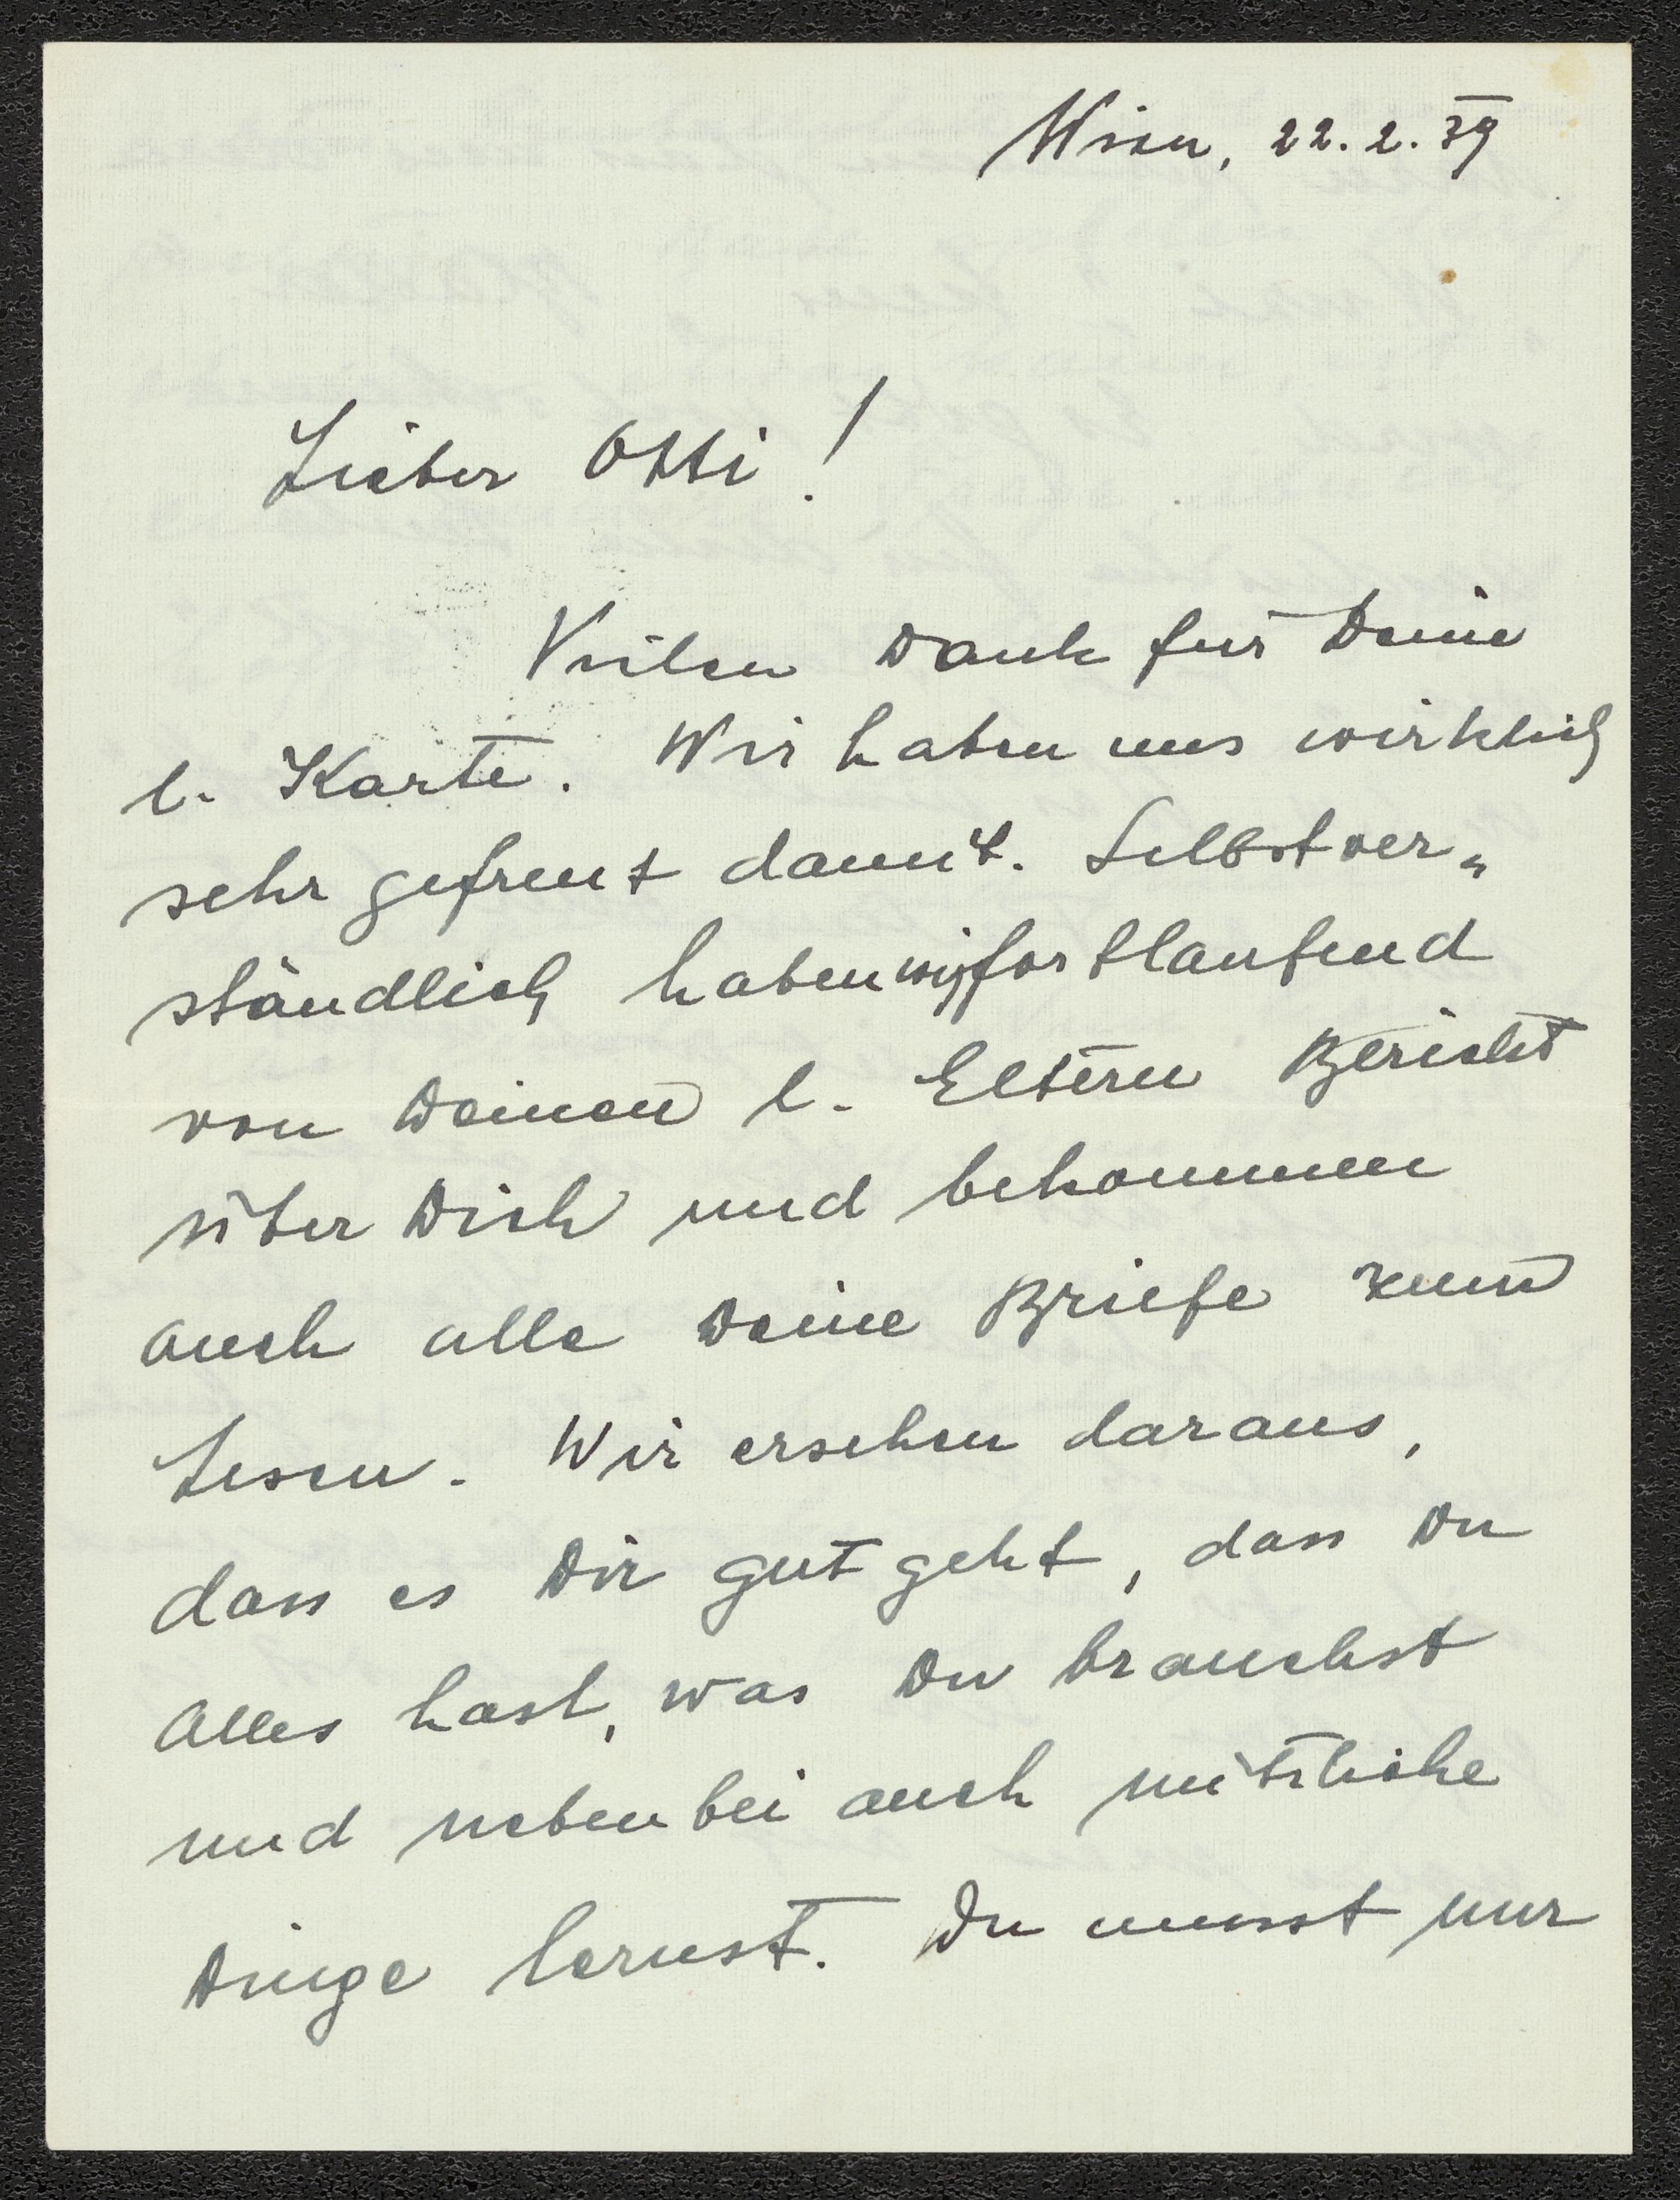 Wien, 22. 2. 39
Lieber Otti!
Vielen Dank für Deine
l. Karte. Wir haben uns wirklich
sehr gefreut damit. Selbstver„
ständlich haben wir fortlaufend
von Deinen l. Eltern Bericht
über Dich und bekommen
auch alle Deine Briefe zum
Lesen. Wir ersehen daraus,
dass es Dir gut geht, dass Du
Alles hast, was Du brauchst
und nebenbei auch nützliche
Dinge lernst. Du musst nur